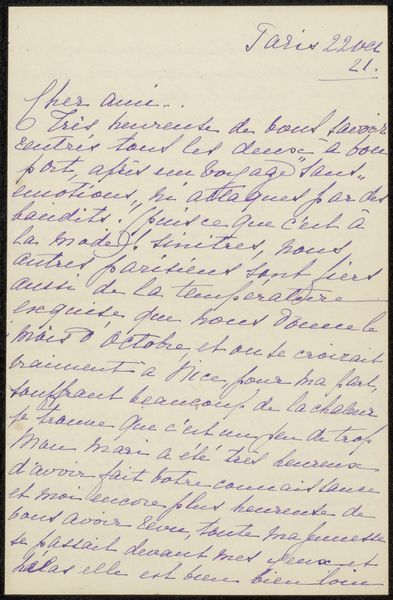 Paris 22 Oct
21.
Cher ami..
Très, heureuse de vous savoir
rentrés tous les deux à bon
port, après un voyage "sans
émotions,, ni attaques par des
bandits! (puisce que c'est à
la mode)! sinitres, nous
autres parisiens sont fiers
aussi de la température
exquise que nous donne le
mois d'Octobre, et on se croirait
vraiment à Nice, pour ma part,
souffrant beaucoup de la chaleur
je trouve que c'est un peu de trop
Mon mari a été très heureux
d'avoir fait votre connaissance
et moi encore plus heureuse de
vous avoir revu, toute ma jeunesse
se passait devant mes yeux et
hélas elle est bien bien loin